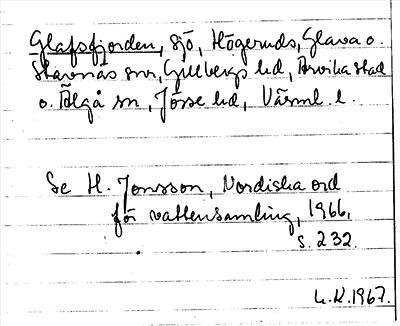 Glafsfjorden, sjö, Högeruds, Glava o.
Stavnäs snr, Gillbergs hd, Arvika stad
o. Älgå sn, Jösse hd, Värml. l.
Se H. Jonsson, Nordiska ord
för vattensamling, 1966,
s. 232.
L.K. 1967.